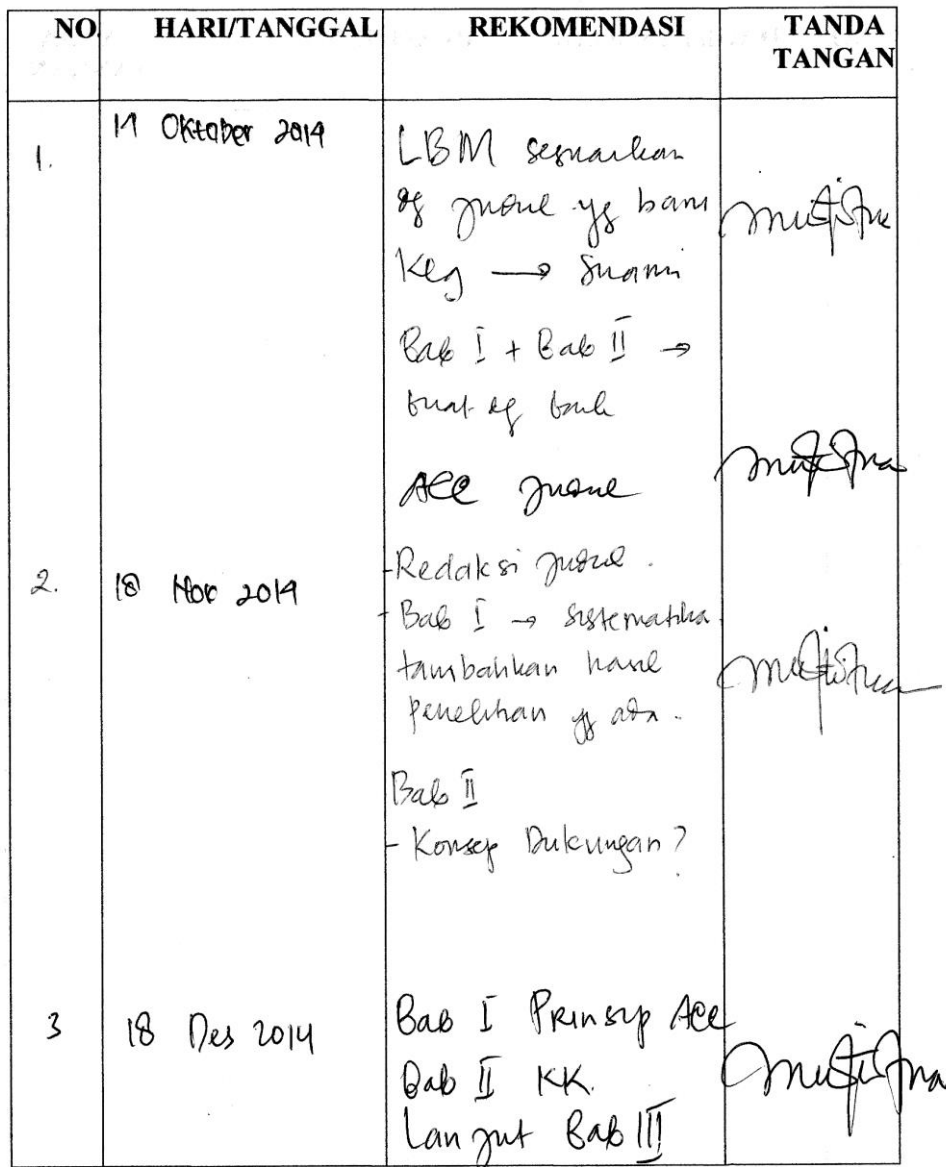 NO. HARI/TANGGAL REKOMENDASI TANDA TANGAN
1. Oktober 2014 LBM sesuaikan
dg judul yg baru
Keg → Suami
Bab I + Bab II →
buat dg baik
ACC judul
2. 18 Nov 2014 - Redaksi judul.
- Bab I → sistematika
tambahkan hasil
penelitian yg ada.
Bab II
- Konsep Dukungan?
3 18 Des 2014 Bab I Prinsip ACC
Bab II KK.
Lanjut Bab III